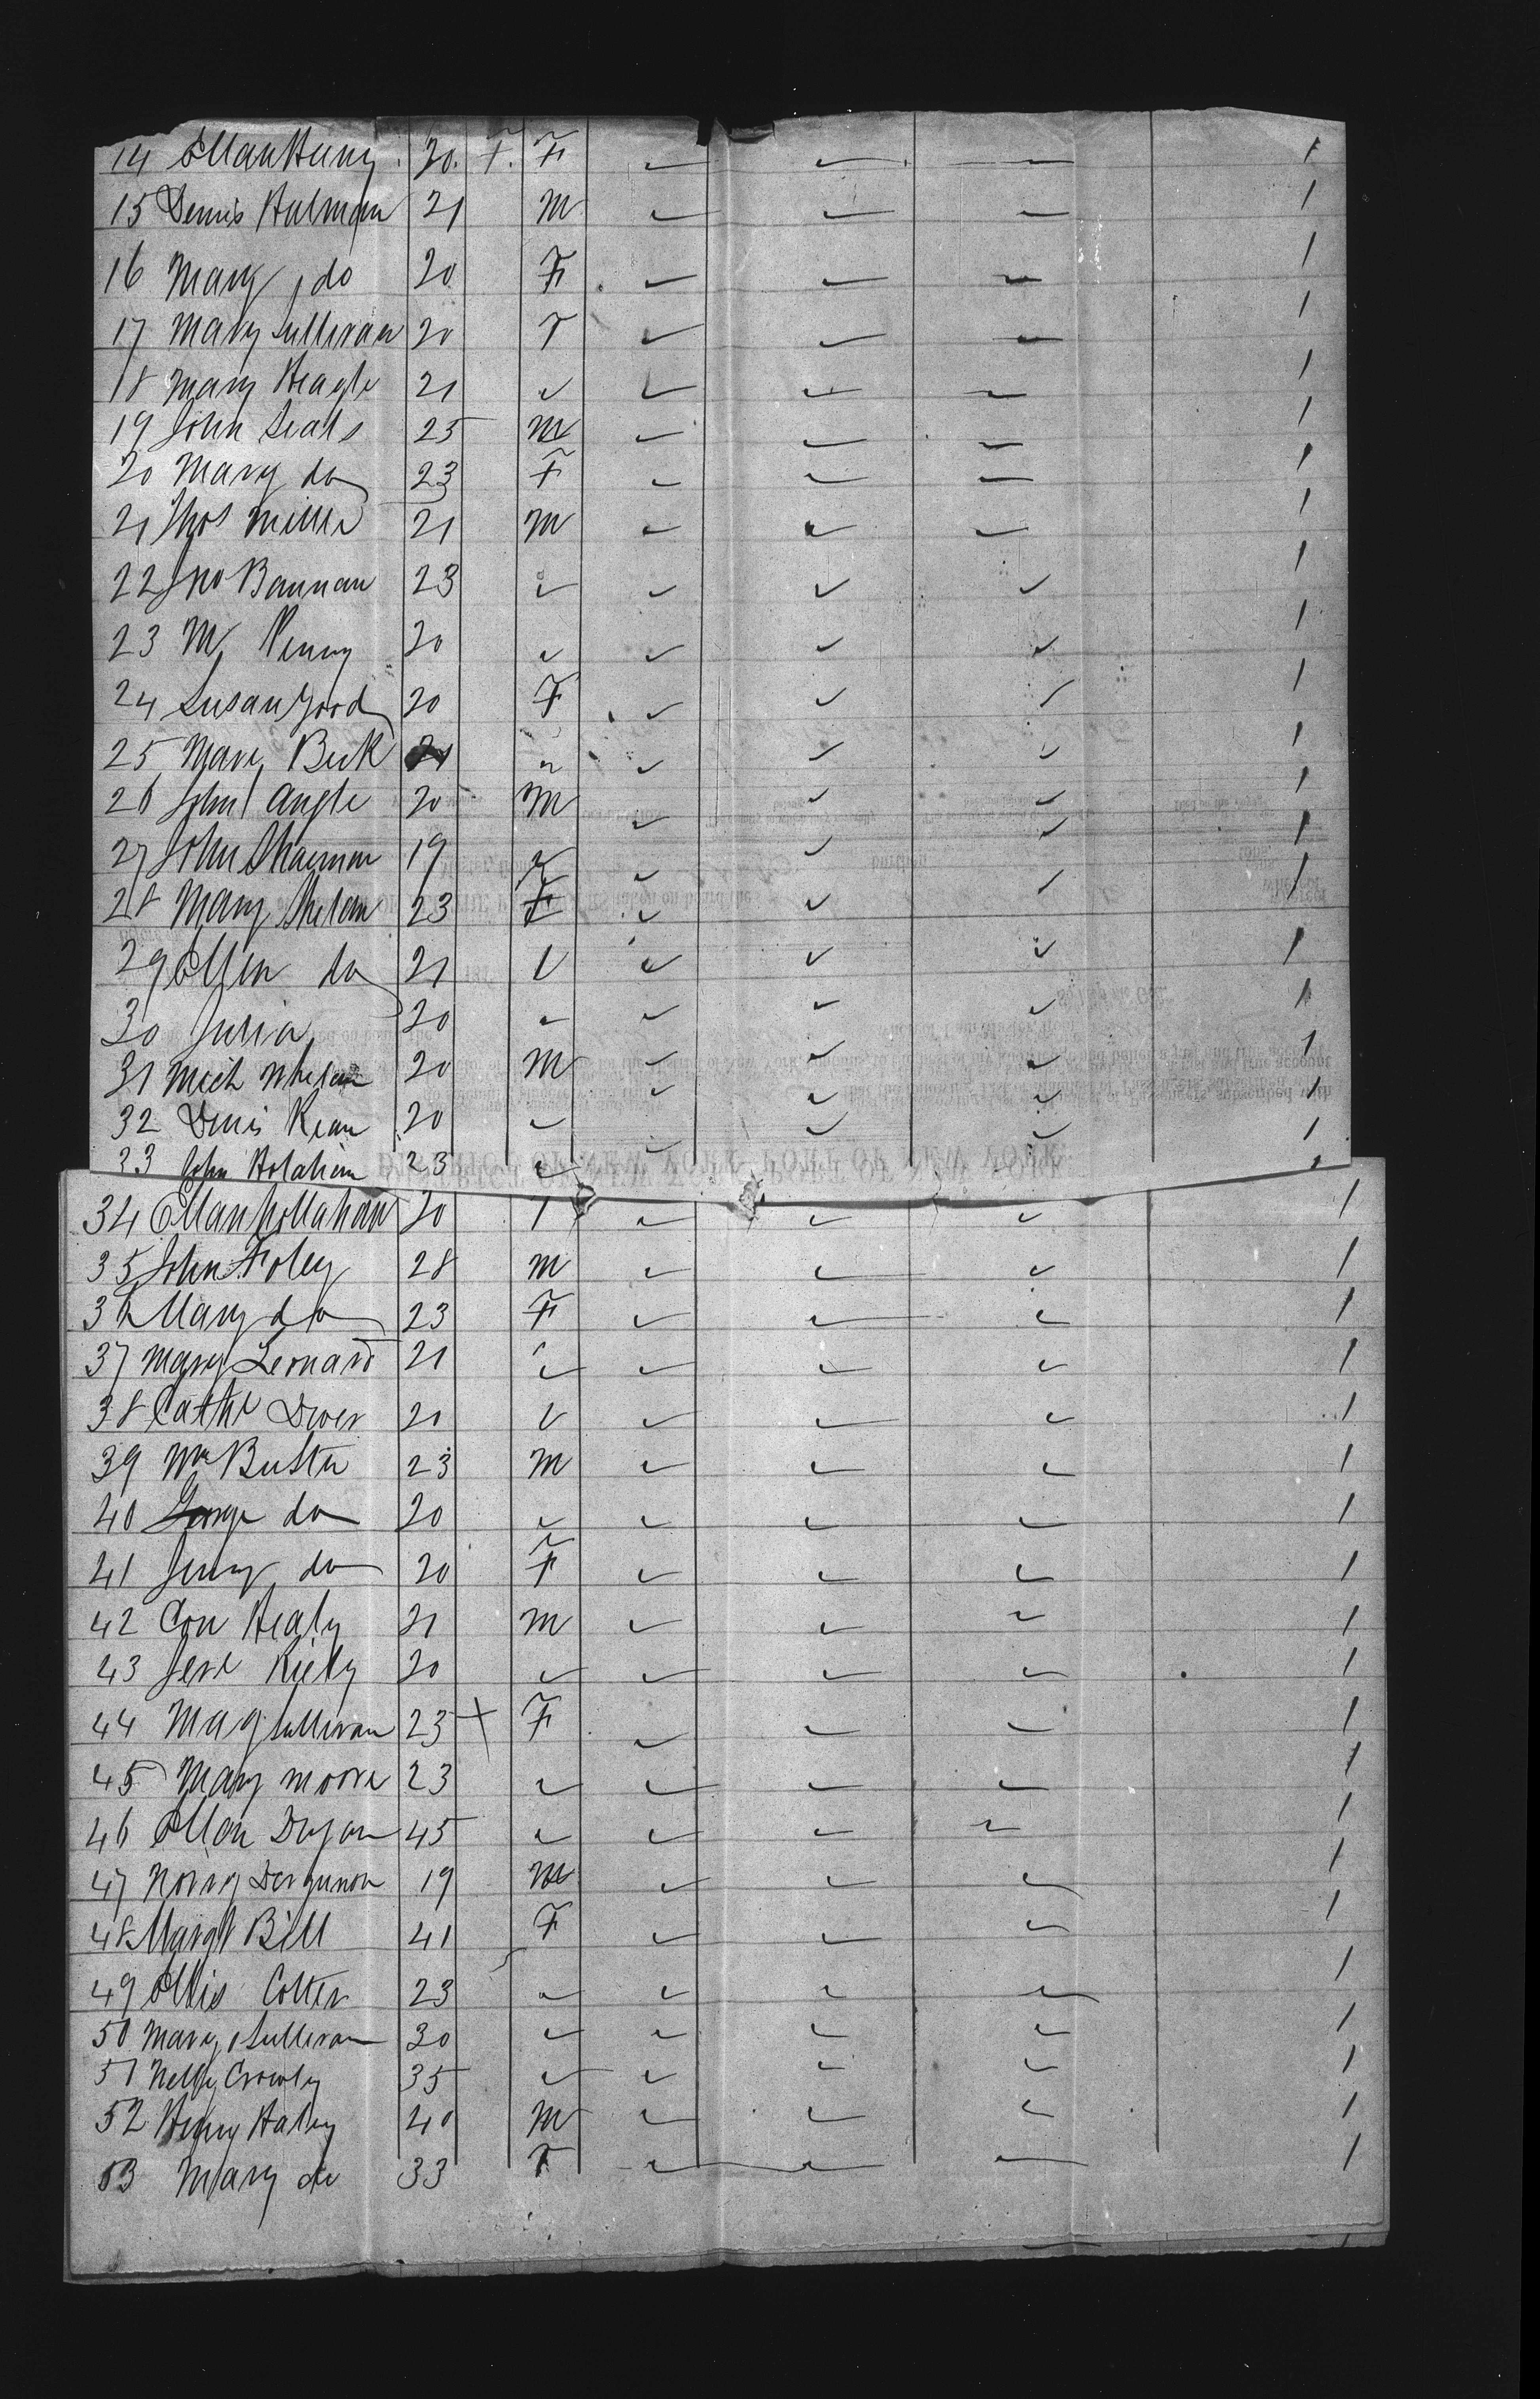 14 Ellan 20. F. F ✓ ✓ ✓ 1
15 Dennis Holman 21 M ✓ ✓ ✓ 1
16 Mary do 20 F ✓ ✓ ✓ 1
17 Mary Sullivan 20 F ✓ ✓ ✓ 1
18 Mary Heagle 21 ✓ ✓ ✓ ✓ 1
19 John Seals 25 M ✓ ✓ ✓ 1
20 Mary do 23 F ✓ ✓ ✓ 1
21 Thos Miller 21 M ✓ ✓ ✓ 1
22 Jno Bannan 23 ✓ ✓ ✓ ✓ 1
23 M Penny 20 ✓ ✓ ✓ ✓ 1
24 Susan Good 20 F ✓ ✓ ✓ 1
25 Mary Beck 21 ✓ ✓ ✓ ✓ 1
26 John Angle 20 M ✓ ✓ ✓ 1
27 John 19 ✓ ✓ ✓ ✓ 1
28 Mary Phelan 23 F ✓ ✓ ✓ 1
29 Ellen do 21 ✓ ✓ ✓ ✓ 1
30 Julia 20 ✓ ✓ ✓ ✓ 1
31 Mich Whelan 20 M ✓ ✓ ✓ 1
32 Denis Kean 20 ✓ ✓ ✓ ✓ 1
33 John Holahan 23 ✓ ✓ ✓ ✓ 1
DISTRICT OF NEW YORK PORT OF NEW YORK
34 Ellan Hollahan 20 F ✓ ✓ ✓ 1
35 John Foley 28 M ✓ ✓ ✓ 1
36 Mary do 23 F ✓ ✓ ✓ 1
37 Mary Leonard 21 ✓ ✓ ✓ ✓ 1
38 Cathe Dwer 20 ✓ ✓ ✓ ✓ 1
39 Wm Butter 23 M ✓ ✓ ✓ 1
40 George do 20 ✓ ✓ ✓ ✓ 1
41 Jenny do 20 F ✓ ✓ ✓ 1
42 Con Healy 21 M ✓ ✓ ✓ 1
43 Jere Kiely 20 ✓ ✓ ✓ ✓ 1
44 Mag Sullivan 23 + F ✓ ✓ ✓ 1
45 Mary Moore 23 ✓ ✓ ✓ ✓ 1
46 Ellan Dugan 45 ✓ ✓ ✓ ✓ 1
47 19 M ✓ ✓ ✓ 1
48 Margt Bill 41 F ✓ ✓ ✓ 1
49 Ellis Cotter 23 ✓ ✓ ✓ ✓ 1
50 Mary Sullivan 30 ✓ ✓ ✓ ✓ 1
51 Nelly Crowly 35 ✓ ✓ ✓ ✓ 1
52 Henry Haley 40 M ✓ ✓ ✓ 1
53 Mary do 33 F ✓ ✓ ✓ 1